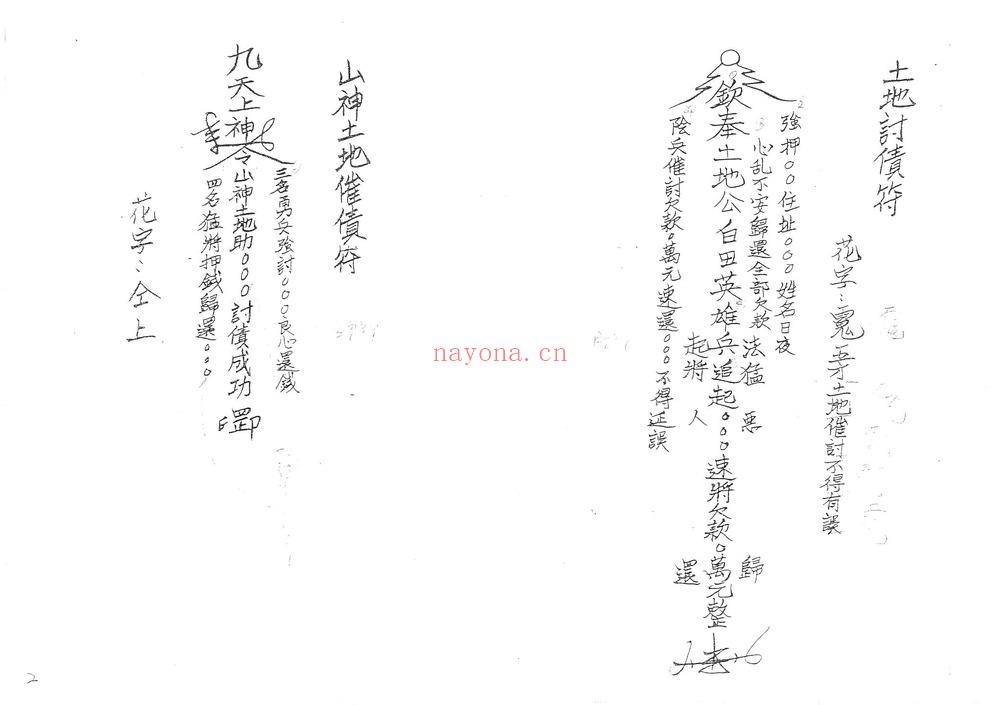 土地討債符
花字：
土地催討不得有誤
強押〇〇住址〇〇〇姓名日夜
心乱不安歸還全部欠款
法猛
惡
歸
欽奉土地公白田英雄兵追起〇〇〇速將欠款〇萬元整
起將
人
還
陰兵催討欠款〇萬元速還〇〇〇不得延誤
山神土地催債符
三名勇兵強討〇〇〇良心還銭
九天上神令山神土地助〇〇〇討債成功
四名猛將押銭歸還〇〇〇
花字：仝上
nayona.cn
2